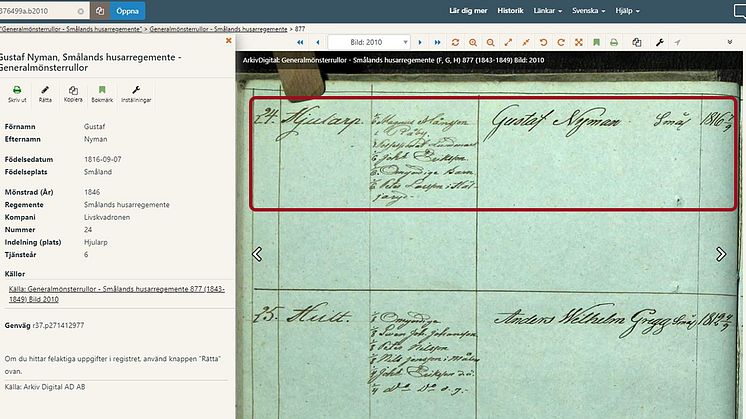 376499a.b2010
Öppna
Lär dig mer Historik Länkar Svenska Hjälp
"Generalmönsterrullor - Smålands husarregemente" > Generalmönsterrullor - Smålands husarregemente > 877
Gustaf Nyman, Smålands husarregemente -
Generalmönsterrullor
Skriv ut Rätta Kopiera Bokmärk Inställningar
Förnamn Gustaf
Efternamn Nyman
Födelsedatum 1816-09-07
Födelseplats Småland
Mönstrad (År) 1846
Regemente Smålands husarregemente
Kompani Livskvadronen
Nummer 24
Indelning (plats) Hjularp
Tjänsteår 6
Källor
Källa: Generalmönsterrullor - Smålands husarregemente 877 (1843-
1849) Bild 2010
Genväg r37.p271412977
Om du hittar felaktiga uppgifter i registret, använd knappen "Rätta"
ovan.
Källa: Arkiv Digital AD AB
Bild: 2010
ArkivDigital: Generalmönsterrullor - Smålands husarregemente (F, G, H) 877 (1843-1849) Bild: 2010
24. Hjularp Gustaf Nyman Smål 1816 7/9
Magnus
i
Joh Eriksson
Omyndige barn
Peter Larsson i
25. Hult. Anders Wilhelm Grigg Smål
Omyndige
Swen Joh. Johansson
Peter Nilsson
Nils Jonsson i
Joh Eriksson